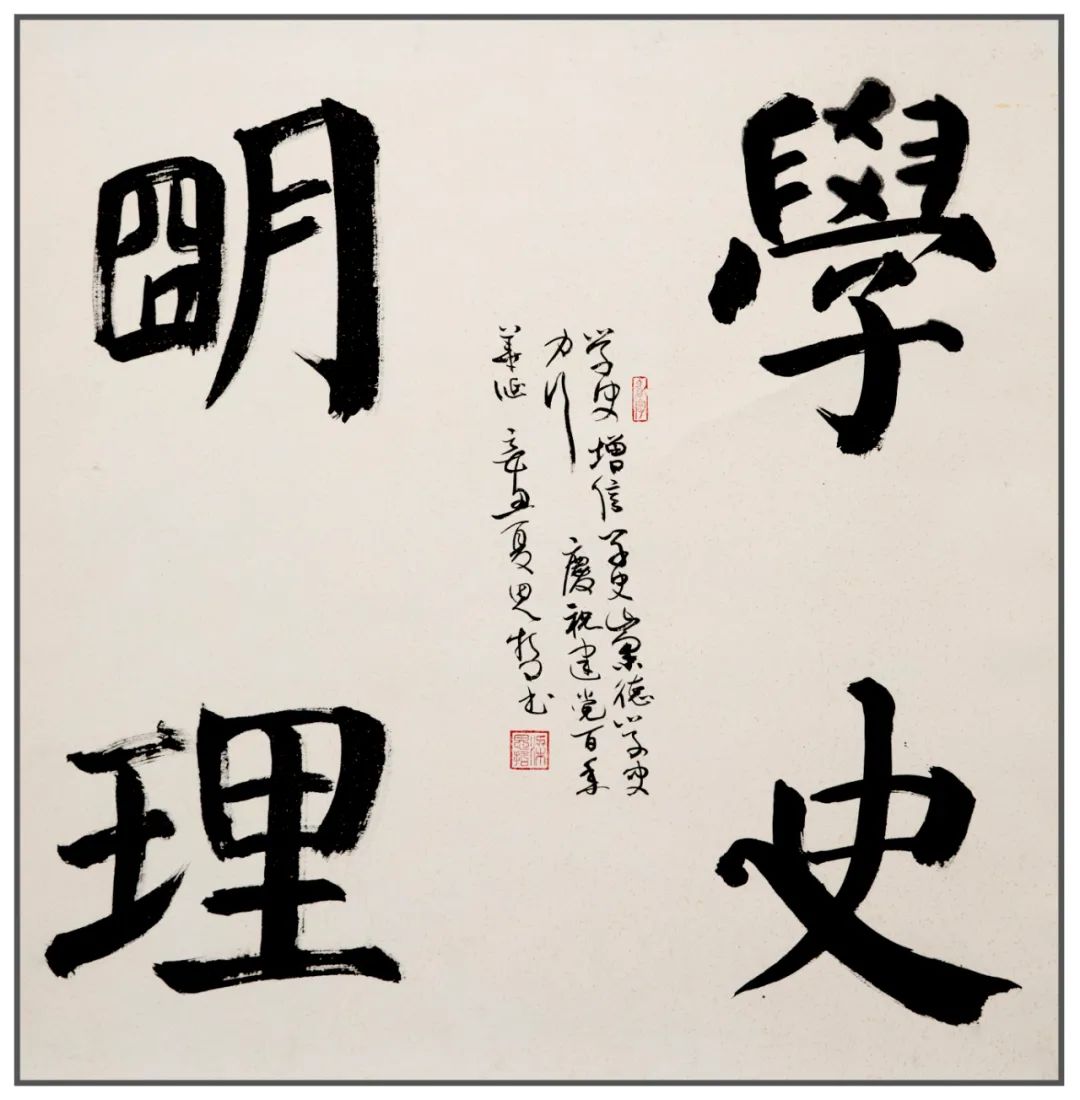 學史
朙理
学史增信学史崇德学史
力行 慶祝建党百年
華诞 辛丑夏思哲书